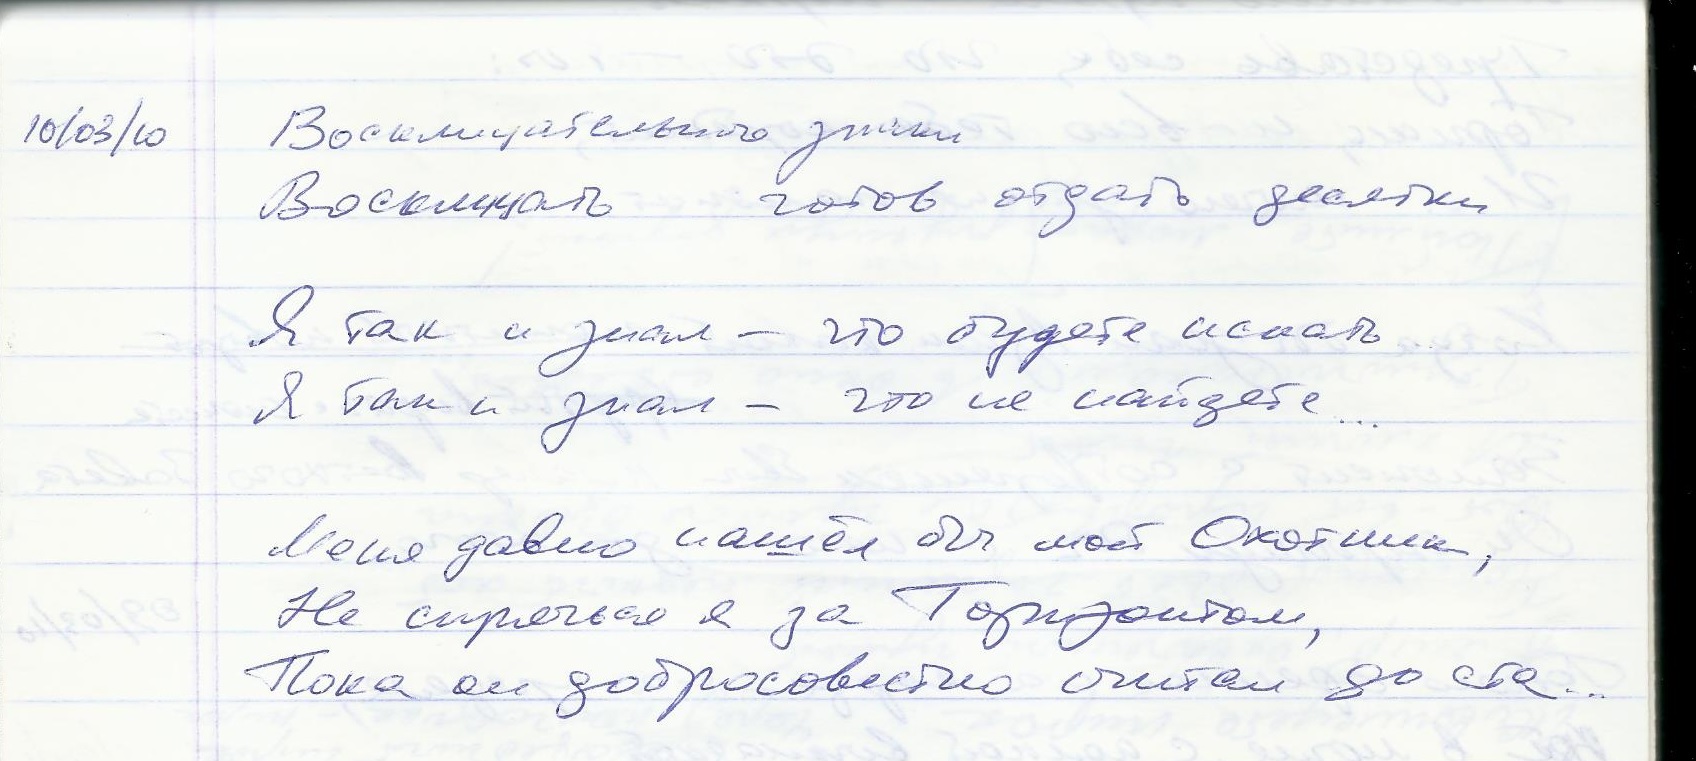 10/03/10 Восклицательного знаки
Восклицать готов отдать десятки
Я так и знал – что будете искать
Я так и знал – что не найдете...
Меня давно нашёл бы мой Охотник,
Не спрячься я за Горизонтом,
Пока он добросовестно считал до ста...